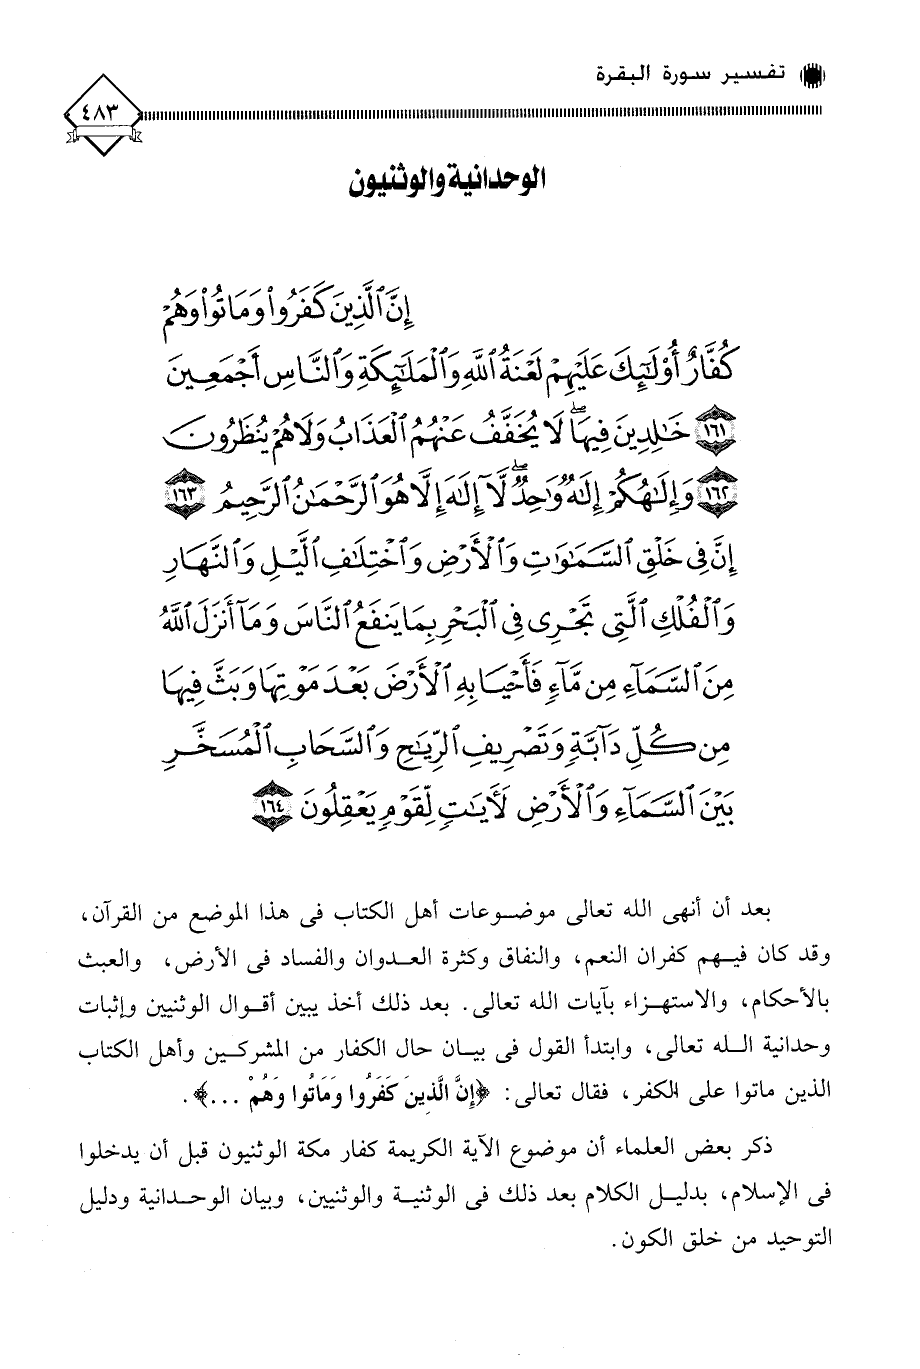 تفسير سورة البقرة
٤٨٣
الوحدانية والوثنيون
إِنَّ ٱلَّذِينَ كَفَرُوا۟ وَمَاتُوا۟ وَهُمْ
كُفَّارٌ أُو۟لَٰٓئِكَ عَلَيْهِمْ لَعْنَةُ ٱللَّهِ وَٱلْمَلَٰٓئِكَةِ وَٱلنَّاسِ أَجْمَعِينَ
١٦١ خَٰلِدِينَ فِيهَا ۖ لَا يُخَفَّفُ عَنْهُمُ ٱلْعَذَابُ وَلَا هُمْ يُنظَرُونَ
١٦٢ وَإِلَٰهُكُمْ إِلَٰهٌ وَٰحِدٌ ۖ لَّآ إِلَٰهَ إِلَّا هُوَ ٱلرَّحْمَٰنُ ٱلرَّحِيمُ ١٦٣
إِنَّ فِى خَلْقِ ٱلسَّمَٰوَٰتِ وَٱلْأَرْضِ وَٱخْتِلَٰفِ ٱلَّيْلِ وَٱلنَّهَارِ
وَٱلْفُلْكِ ٱلَّتِى تَجْرِى فِى ٱلْبَحْرِ بِمَا يَنفَعُ ٱلنَّاسَ وَمَآ أَنزَلَ ٱللَّهُ
مِنَ ٱلسَّمَآءِ مِن مَّآءٍ فَأَحْيَا بِهِ ٱلْأَرْضَ بَعْدَ مَوْتِهَا وَبَثَّ فِيهَا
مِن كُلِّ دَآبَّةٍ وَتَصْرِيفِ ٱلرِّيَٰحِ وَٱلسَّحَابِ ٱلْمُسَخَّرِ
بَيْنَ ٱلسَّمَآءِ وَٱلْأَرْضِ لَءَايَٰتٍ لِّقَوْمٍ يَعْقِلُونَ ١٦٤
بعد أن أنهى الله تعالى موضوعات أهل الكتاب فى هذا الموضع من القرآن،
وقد كان فيهم كفران النعم، والنفاق وكثرة العدوان والفساد فى الأرض، والعبث
بالأحكام، والاستهزاء بآيات الله تعالى. بعد ذلك أخذ يبين أقوال الوثنيين وإثبات
وحدانية الله تعالى، وابتدأ القول فى بيان حال الكفار من المشركين وأهل الكتاب
الذين ماتوا على الكفر، فقال تعالى: ﴿إِنَّ الَّذِينَ كَفَرُوا وَمَاتُوا وَهُمْ ...﴾.
ذكر بعض العلماء أن موضوع الآية الكريمة كفار مكة الوثنيون قبل أن يدخلوا
فى الإسلام، بدليل الكلام بعد ذلك فى الوثنية والوثنيين، وبيان الوحدانية ودليل
التوحيد من خلق الكون.